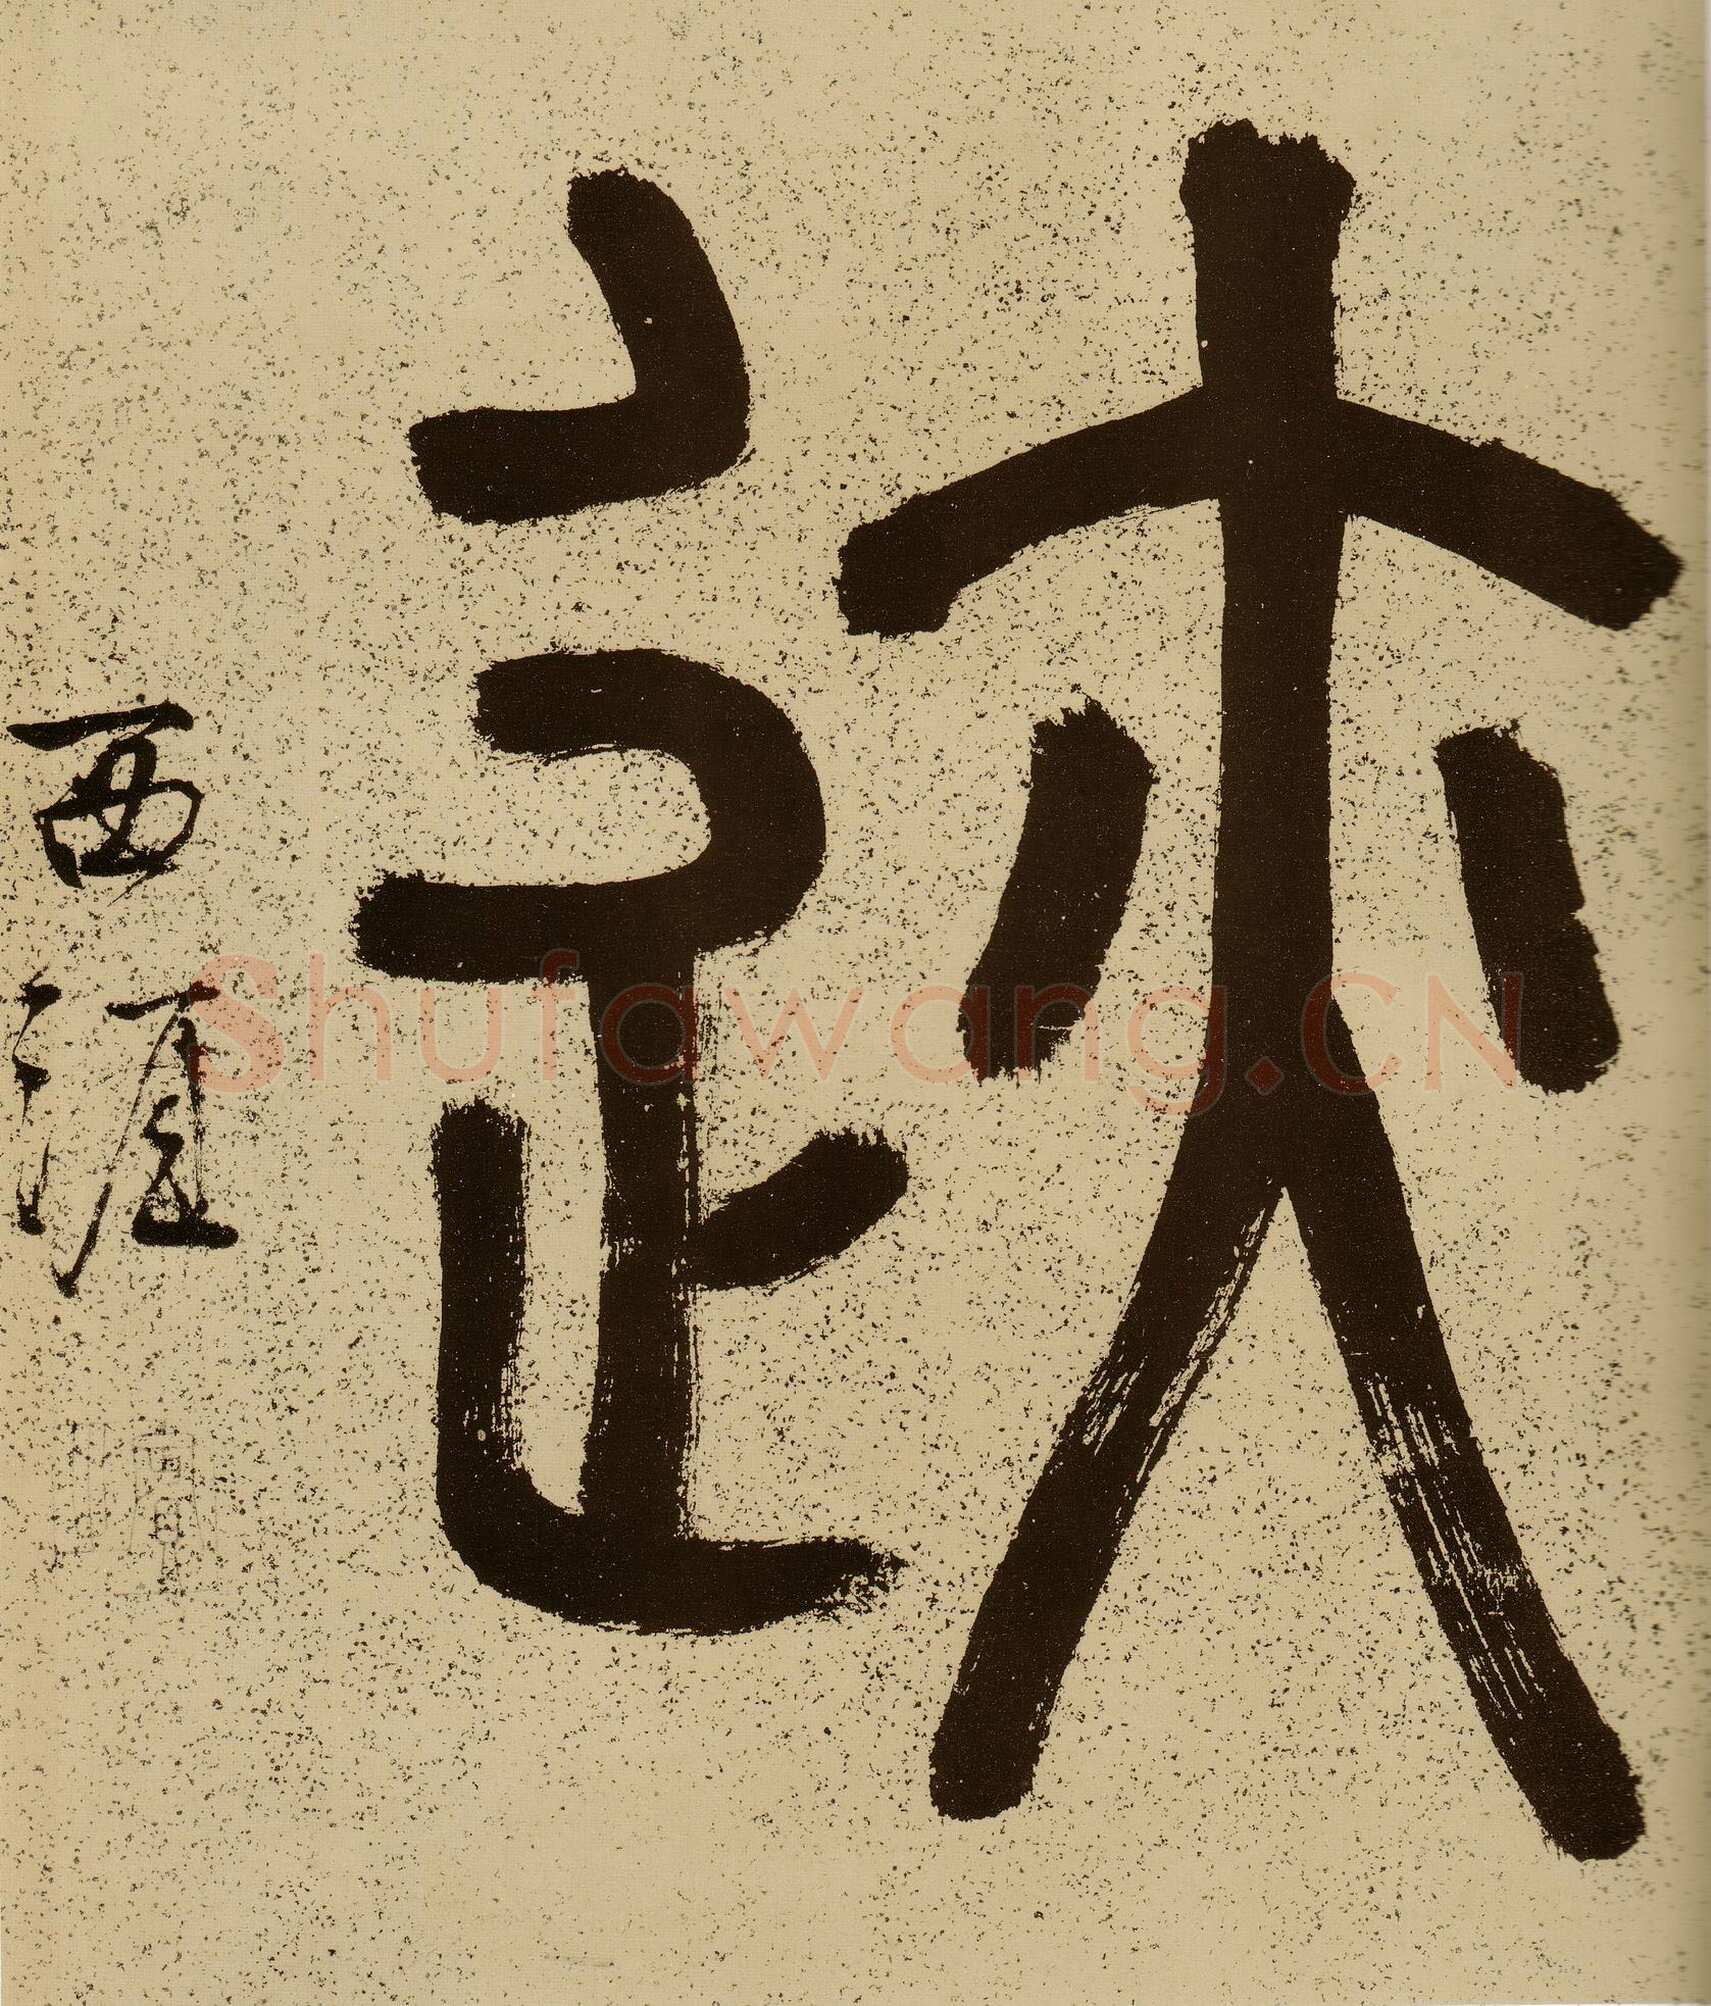 迹
西涯
Shufawang.CN